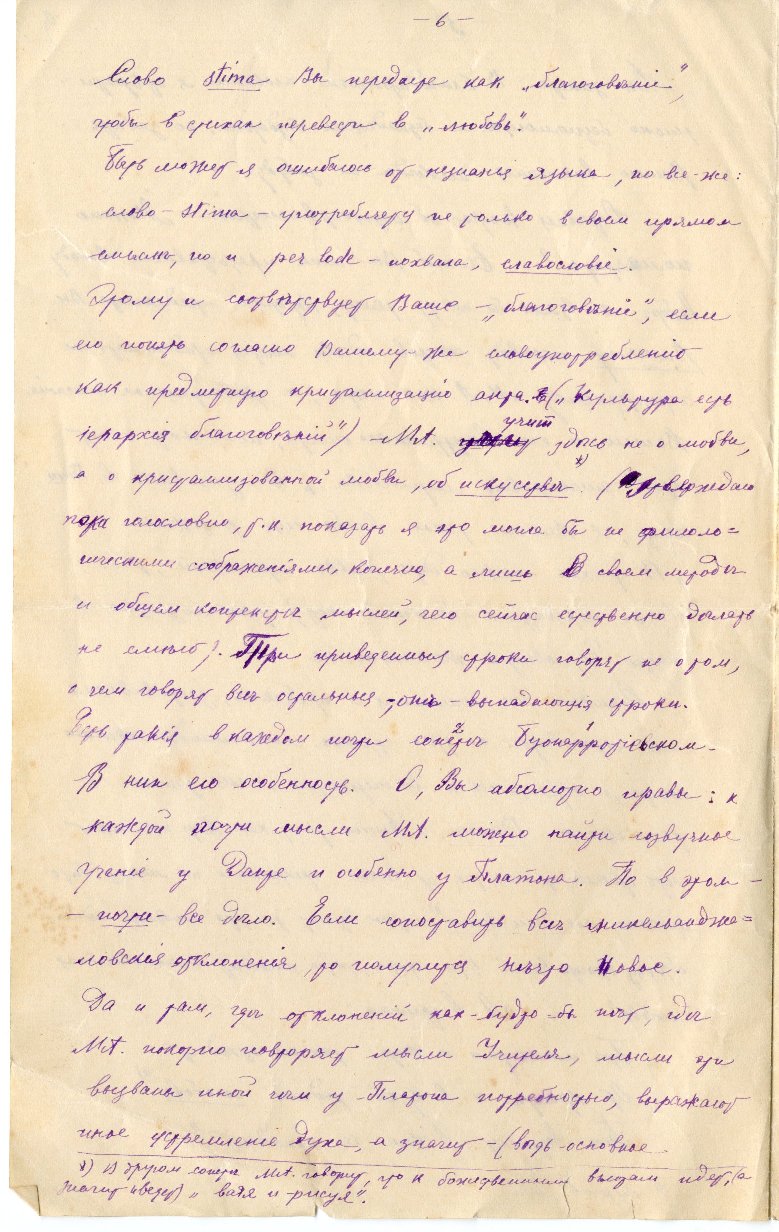 — 6 —
Слово stima Вы передаете как „благоговѣніе",
чтобы в стихах перевести в „любовь".
Быть может я ошибаюсь от незнанья языка, но все-же:
слово – stima – употребляется не только в своем прямом
смыслѣ, но и per lode – похвала, славословіе.
Этому и соотвѣтствует Ваше – „благоговѣніе", если
его понять согласно Вашему-же словоупотребленію
как предметную кристаллизацію акта. („Культура есть
іерархія благоговѣній") – МА. учит здѣсь не о любви,
а о кристаллизованной любви, об искусствѣ x). (Утверждаю
пока голословно, т.к. показать я это могла бы не филоло=
гическими соображеніями, конечно, а лишь в своем методѣ
и общем контекстѣ мыслей, чего сейчас естественно дѣлать
не смѣю). Три приведенныя строки говорят не о том,
о чем говорят всѣ остальныя, – онѣ – выпадающія строки.
Есть такія в каждом почти сонетѣ 2 Буонарротіевском 1.
В них его особенность. О, Вы абсолютно правы: к
каждой почти мысли МА. можно найти созвучное
ученіе у Данте и особенно у Платона. Но в этом –
– почти – все дѣло. Если сопоставить всѣ микельандже=
ловскія отклоненія, то получится нѣчто новое.
Да и там, гдѣ отклоненій как-будто-бы нѣт, гдѣ
МА. покорно повторяет мысли Учителя, мысли эти
вызваны иной чѣм у Платона потребностью, выражают
иное устремленіе духа, а значит – (вѣдь основное
x) В другом сонетѣ МА. говорит, что к божественным высотам идет, (а
значит и ведет) „ваяя и рисуя".